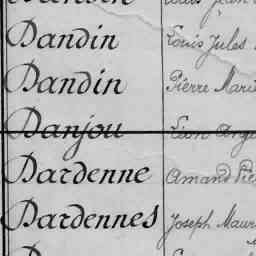 Dandin Louis Jules
Dandin Pierre Marie
Danjou Léon Ange
Dardenne Amand Pie
Dardennes Joseph Maur